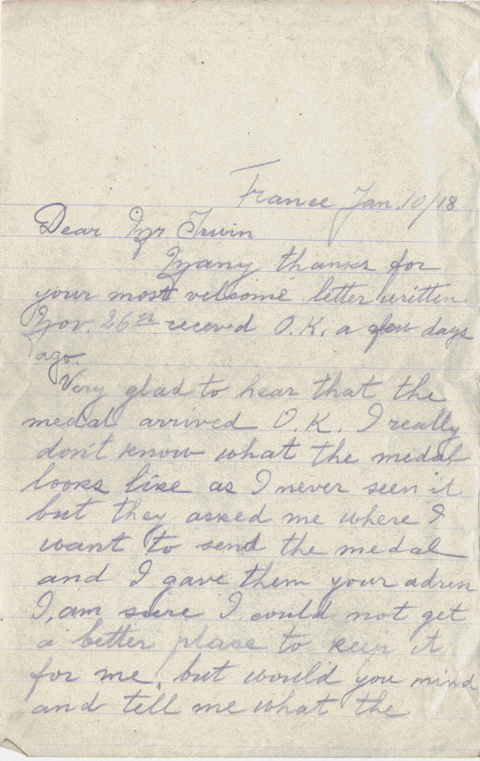 France Jan. 10/18
Dear Mr Irwin
Many thanks for
your most velcome letter written
Nov. 26th receved O.K. a few days
ago.
Very glad to hear that the
medal arrived O.K. I really
don't know what the medal
looks like as I never seen it
but they asked me where I
want to send the medal
and I gave them your adress
I, am sure I could not get
a better place to keep it
for me, but would you mind
and tell me what the